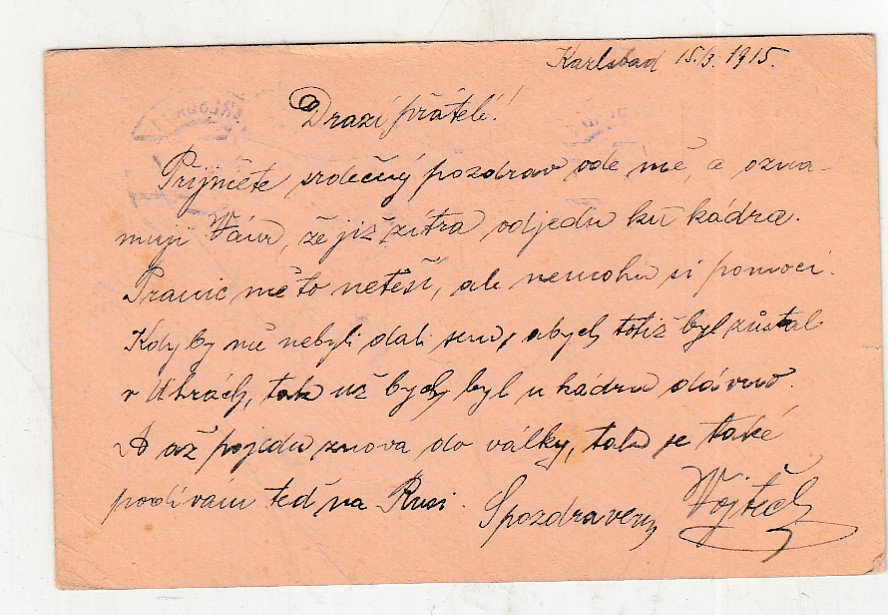 Karlsbad 15./3. 1915.
Drazí přátelé!
Prijměte srdečný pozdrav ode mě, a ozna-
muji Vám, že již zítra odjedu ku kádra.
Pranic mě to netěší, ale nemohu si pomoci.
Kdyby mě nebyli dali sem, abych totiž byl zůstal
v Uhrách, tak už bych byl u kádru dávno.
A až pojedu znova do války, tak se také
podívám teď na Rusi. Spozdravem Vojtěch